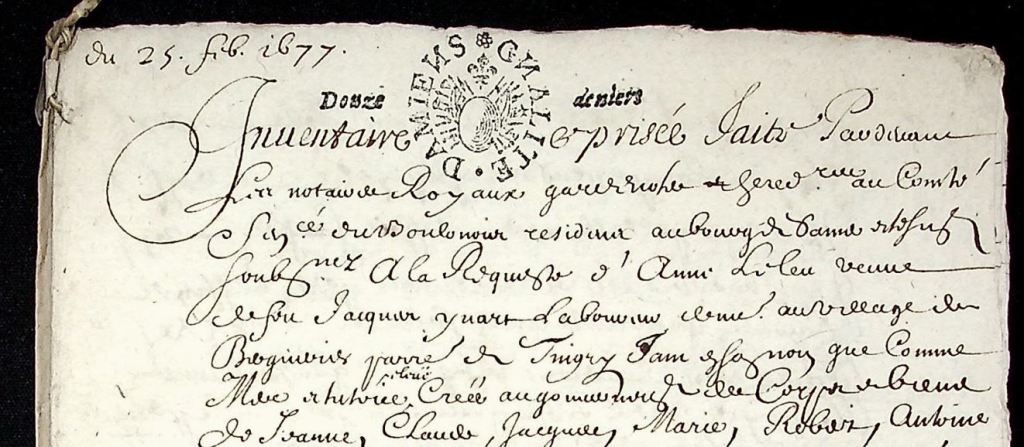 du 25. feb. 1677.
GNALITE · DAMIENS
Douze deniers
Inuentaire & prisée faite Pardeuant
Les notaires Royaux gardenotte & hered.res au Comté
Sen.cé du Boulonois residens au bourg de Samer et desure
soubsgnez A la Requeste d'Anne Leleu veuue
de feu Jacques ynart Laboureur dem.t au village de
Beginerie parre de Tingry Tam en son nom que Comme
Mere et tutrice esleue Creée au gouuernemens des Corps et biens
de Jeanne, Claude, Jacques, Marie, Robert, Antoine